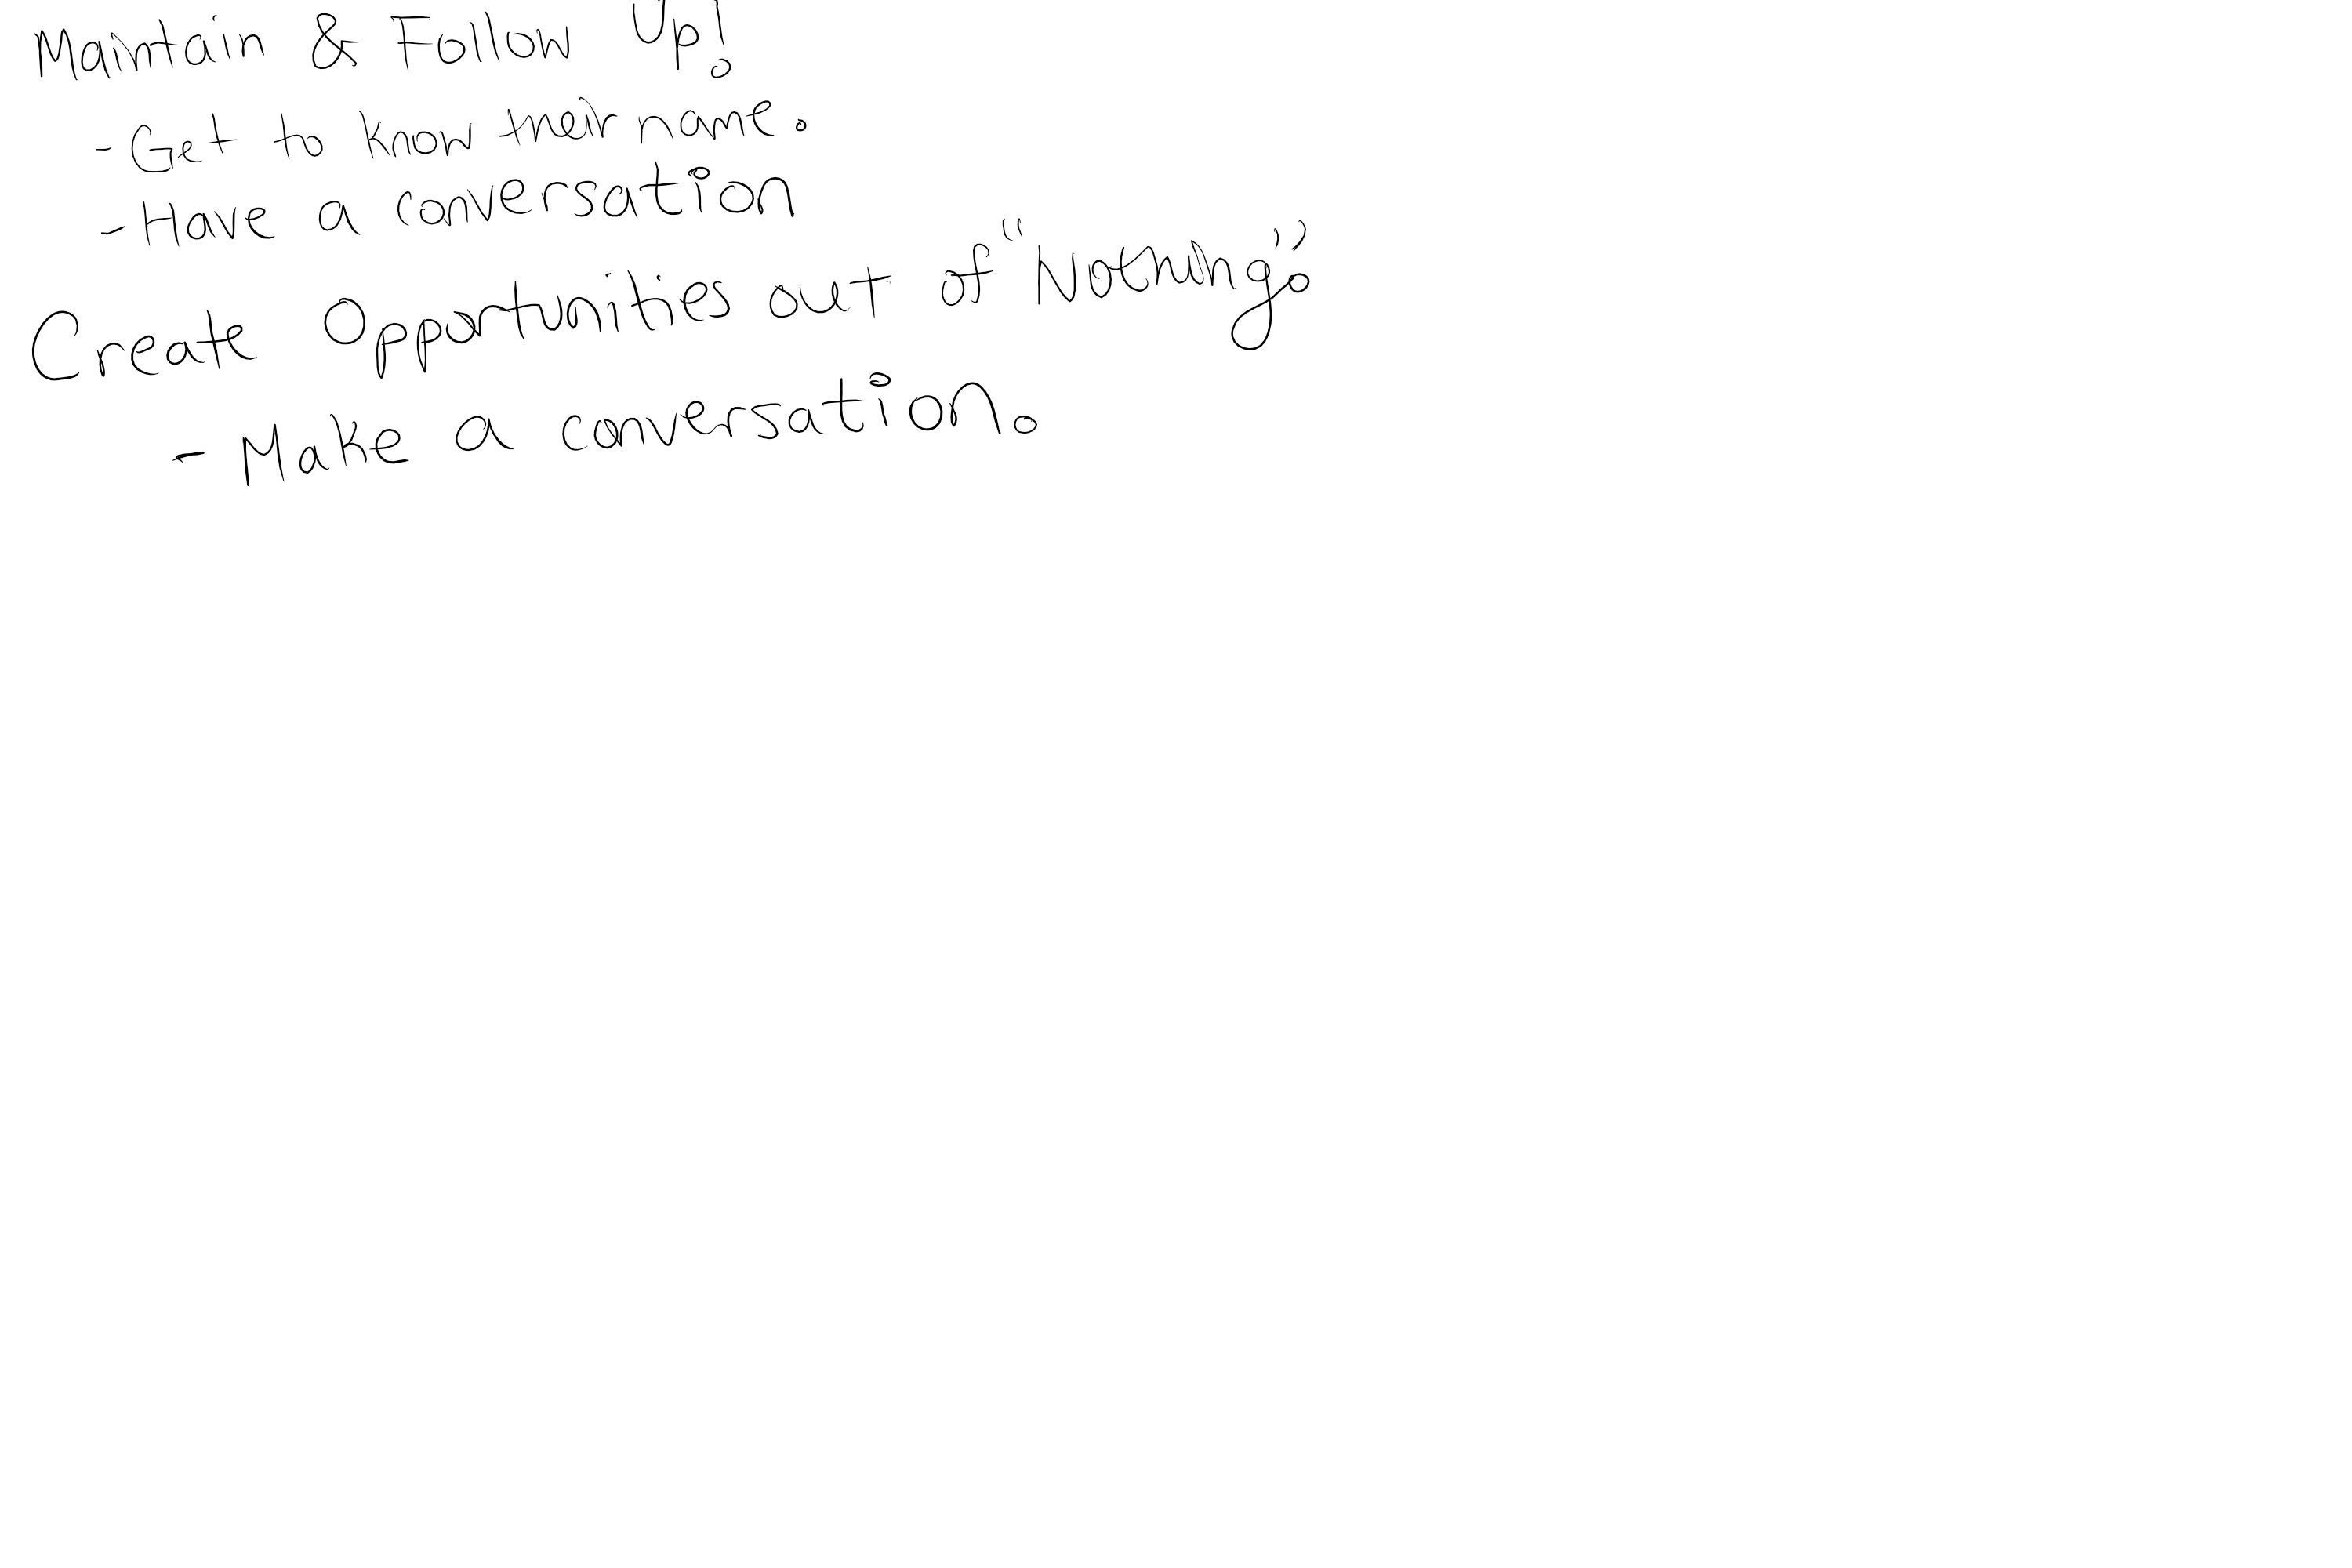 Maintain & Follow Up!
- Get to know their name.
- Have a conversation
Create Opportunities out of "Nothing".
- Make a conversation.